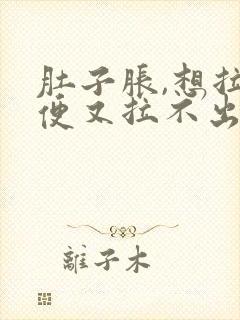 肚子脹,想拉
便又拉不出
離子木